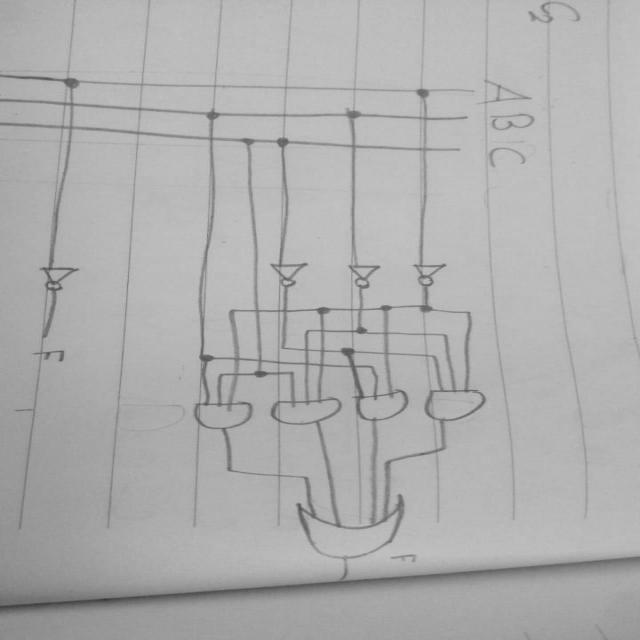 A
B
C
F
F